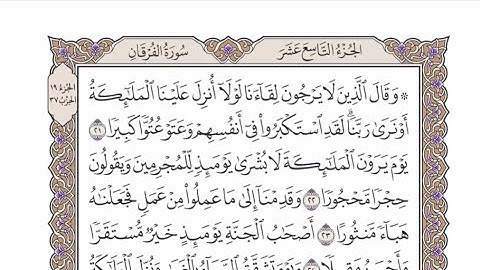 الجزء التاسع عشر
سورة الفرقان
الجزء ١٩
الحزب ٣٧
۞ وَقَالَ ٱلَّذِينَ لَا يَرْجُونَ لِقَآءَنَا لَوْلَآ أُنزِلَ عَلَيْنَا ٱلْمَلَٰٓئِكَةُ
أَوْ نَرَىٰ رَبَّنَا ۗ لَقَدِ ٱسْتَكْبَرُوا۟ فِىٓ أَنفُسِهِمْ وَعَتَوْ عُتُوًّا كَبِيرًا ٢١
يَوْمَ يَرَوْنَ ٱلْمَلَٰٓئِكَةَ لَا بُشْرَىٰ يَوْمَئِذٍ لِّلْمُجْرِمِينَ وَيَقُولُونَ
حِجْرًا مَّحْجُورًا ٢٢ وَقَدِمْنَآ إِلَىٰ مَا عَمِلُوا۟ مِنْ عَمَلٍ فَجَعَلْنَٰهُ
هَبَآءً مَّنثُورًا ٢٣ أَصْحَٰبُ ٱلْجَنَّةِ يَوْمَئِذٍ خَيْرٌ مُّسْتَقَرًّا